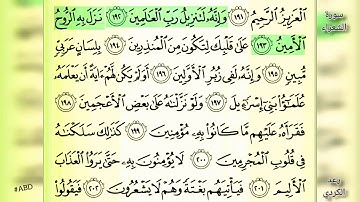 ٱلْعَزِيزُ ٱلرَّحِيمُ ١٩١ وَإِنَّهُۥ لَتَنزِيلُ رَبِّ ٱلْعَٰلَمِينَ ١٩٢ نَزَلَ بِهِ ٱلرُّوحُ
ٱلْأَمِينُ ١٩٣ عَلَىٰ قَلْبِكَ لِتَكُونَ مِنَ ٱلْمُنذِرِينَ ١٩٤ بِلِسَانٍ عَرَبِيٍّ
مُّبِينٍ ١٩٥ وَإِنَّهُۥ لَفِى زُبُرِ ٱلْأَوَّلِينَ ١٩٦ أَوَلَمْ يَكُن لَّهُمْ ءَايَةً أَن يَعْلَمَهُۥ
عُلَمَٰٓؤُا۟ بَنِىٓ إِسْرَٰٓءِيلَ ١٩٧ وَلَوْ نَزَّلْنَٰهُ عَلَىٰ بَعْضِ ٱلْأَعْجَمِينَ ١٩٨
فَقَرَأَهُۥ عَلَيْهِم مَّا كَانُوا۟ بِهِۦ مُؤْمِنِينَ ١٩٩ كَذَٰلِكَ سَلَكْنَٰهُ
فِى قُلُوبِ ٱلْمُجْرِمِينَ ٢٠٠ لَا يُؤْمِنُونَ بِهِۦ حَتَّىٰ يَرَوُا۟ ٱلْعَذَابَ
ٱلْأَلِيمَ ٢٠١ فَيَأْتِيَهُم بَغْتَةً وَهُمْ لَا يَشْعُرُونَ ٢٠٢ فَيَقُولُوا۟
سورة
الشعراء
رعد
الكردي
#ABD